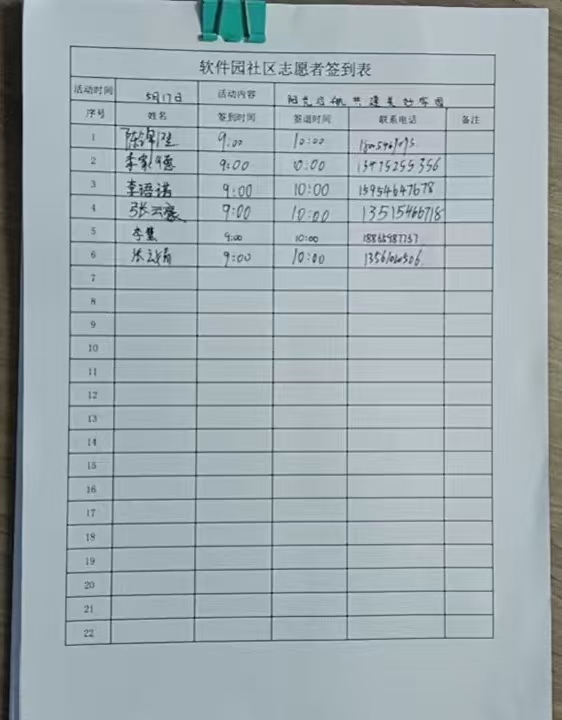 软件园社区志愿者签到表
活动时间 5月17日 活动内容 阳光启航 共建美好家园
序号 姓名 签到时间 签退时间 联系电话 备注
1 9:00 10:00
2 李家德 9:00 10:00 13475255356
3 李语诺 9:00 10:00 15954647678
4 9:00 10:00 13515466718
5 李慧 9:00 10:00
6 9:00 10:00
7
8
9
10
11
12
13
14
15
16
17
18
19
20
21
22